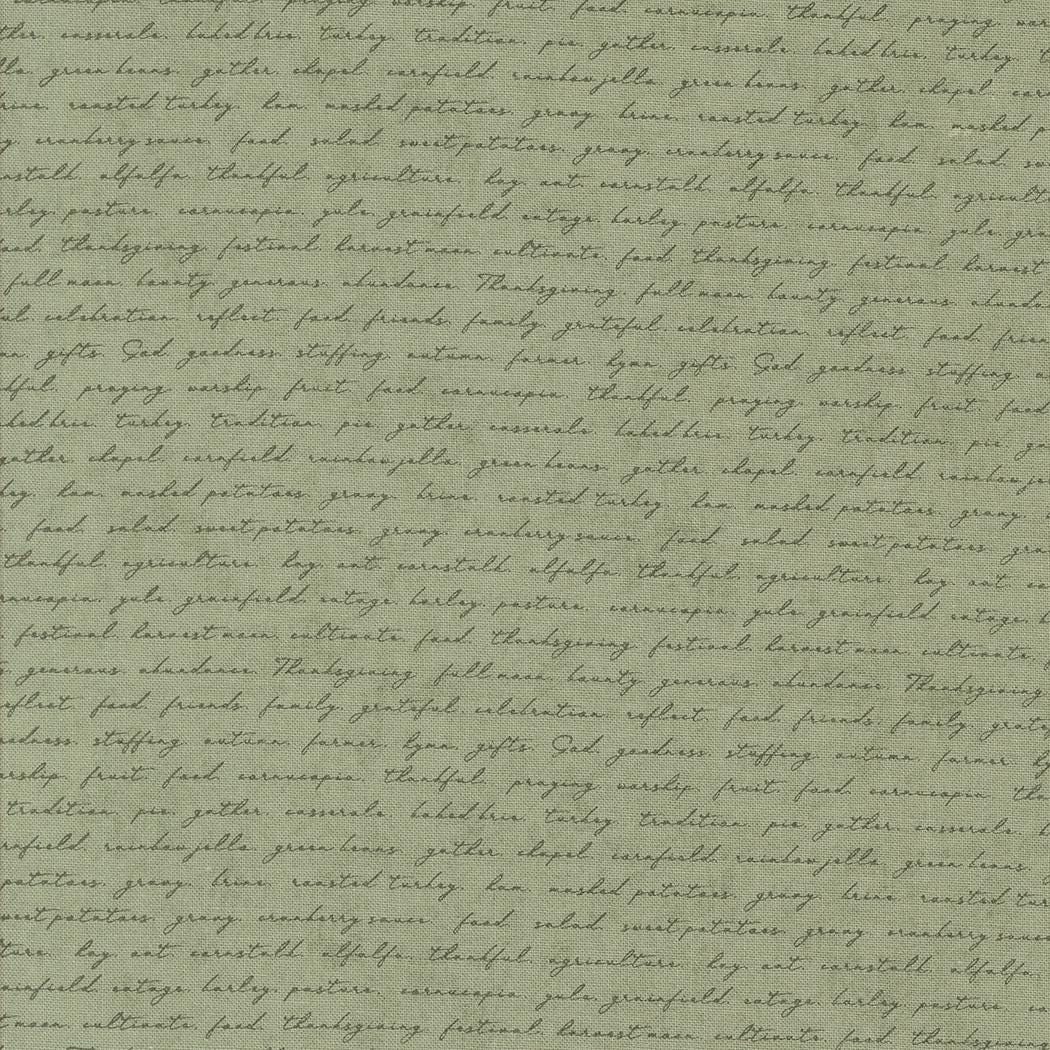 cornucopia. thankful. praying worship. fruit. food. cornucopia. thankful. praying.
casserole. baked brie. turkey. tradition. pie. gather. casserole. baked brie. turkey.
green beans. gather. chapel. cornfield. rainbow jello. green beans. gather. chapel.
roasted turkey. ham. mashed potatoes. gravy brine. roasted turkey. ham. mashed
cranberry sauce. food. salad. sweet potatoes. gravy. cranberry sauce. food. salad.
alfalfa. thankful. agriculture. hay. oat. cornstalk. alfalfa. thankful. agriculture
pasture. cornucopia. yule. grainfield. cotage. barley pasture. cornucopia. yule.
food. thanksgiving. festival. harvest moon. cultivate. food. thanksgiving. festival. harvest
full moon. bounty. generous. abundance. Thanksgiving. full moon. bounty. generous.
celebration. reflect. food. friends. family. grateful. celebration. reflect. food.
gifts. God. goodness. stuffing. autumn. farmer. hymn gifts. God. goodness stuffing
praying worship fruit food. cornucopia. thankful. praying. worship. fruit. food
baked brie. turkey. tradition. pie. gather. casserole. baked brie. turkey. tradition. pie.
gather. chapel. cornfield rainbow jello. green beans. gather. chapel. cornfield. rainbow
ham. mashed potatoes. gravy. brine. roasted turkey. ham. mashed potatoes. gravy.
food. salad. sweet potatoes. gravy. cranberry sauce. food. salad. sweet potatoes.
thankful. agriculture. hay. oat. cornstalk alfalfa. thankful. agriculture. hay oat
yule. grainfield. cotage. barley. pasture. cornucopia. yule grainfield cotage.
festival. harvest moon. cultivate. food. thanksgiving. festival. harvest moon. cultivate.
generous abundance. Thanksgiving full moon. bounty generous. abundance. Thanksgiving
reflect. food. friends. family. grateful. celebration. reflect. food. friends. family.
goodness. stuffing autumn. farmer. hymn. gifts. God. goodness stuffing autumn. farmer
worship. fruit. food. cornucopia. thankful. praying worship. fruit. food. cornucopia
tradition. pie. gather. casserole. baked brie. turkey. tradition. pie. gather. casserole.
cornfield. rainbow jello. green beans. gather. chapel. cornfield. rainbow jello. green beans.
potatoes. gravy. brine. roasted turkey. ham. mashed potatoes. gravy. brine roasted
sweet potatoes. gravy. cranberry sauce. food. salad. sweet potatoes. gravy. cranberry sauce
hay. oat. cornstalk. alfalfa. thankful. agriculture. hay. oat. cornstalk. alfalfa.
grainfield. cotage. barley. pasture. cornucopia. yule. grainfield. cotage. barley. pasture
moon. cultivate. food. thanksgiving. festival. harvest moon cultivate. food. thanksgiving